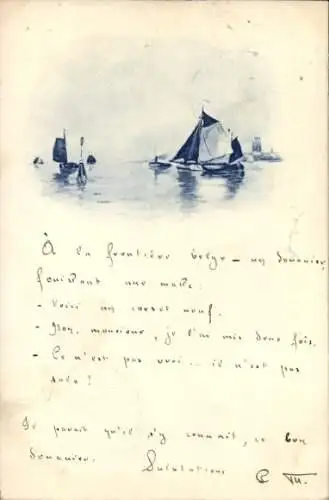 À la frontière belge - un douanier,
fouillant une malle :
- Voici un corset neuf.
- Non, monsieur, je l'ai mis deux fois.
- Ce n'est pas vrai... il n'est pas
sale !
Il paraît qu'il s'y connaît, ce bon
douanier.
Salutations